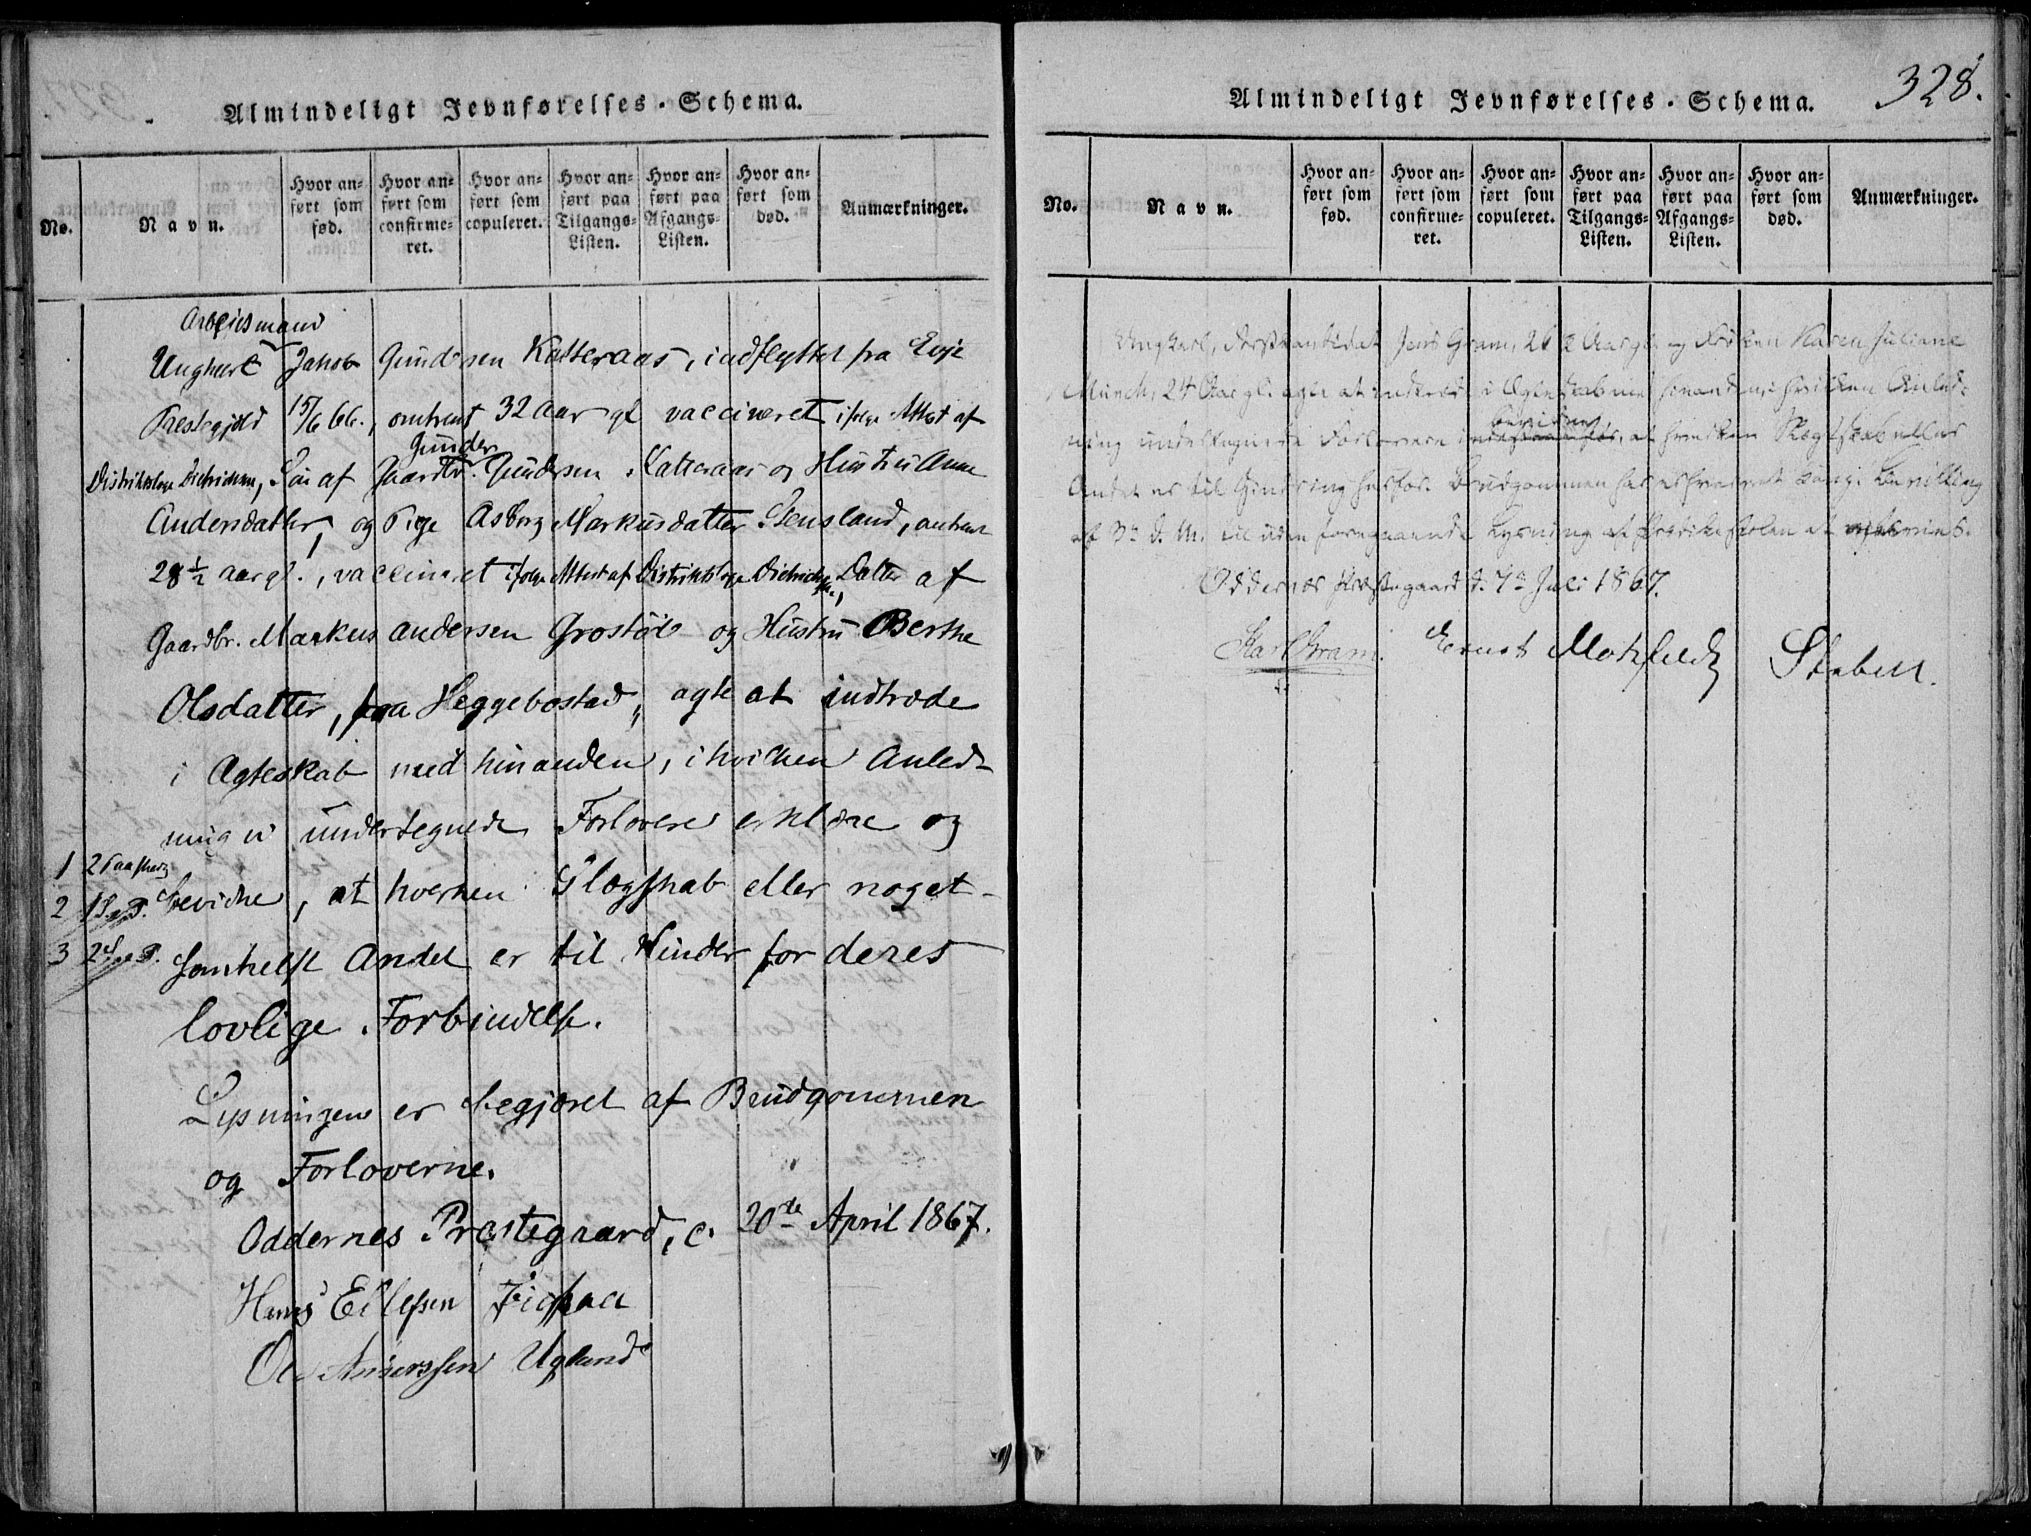 Almindeligt Jevnførelses-Schema.
No.
Navn.
Hvor anført som fød.
Hvor anført som confirmeret.
Hvor anført som copuleret.
Hvor anført paa Tilgangs-Listen.
Hvor anført paa Afgangs-Listen.
Hvor anført som død.
Anmærkninger.
Arbeidsmand
Ungkarl Jakob Gundersen Katteraas, indflyttet fra Evje
Præstegjeld 15/6 66., omtrent 32 Aar gl vaccineret ifølge Attest af
Gunder
Distriktslæge Dietrichson, Søn af Gaardbr. Gundersen Katteraas og Hustru Anne
Andersdatter, og Pige Asborg Markusdatter Stensland, omtrent
28 1/2 Aar gl., vaccineret ifølge Attest af Distriktslæge Dietrichson, Datter af
Gaardbr. Markus Andersen Grostøl og Hustru Berthe
Olsdatter, fra Heggebostad, agte at indtræde
i Ægteskab med hinanden, i hvilken Anled-
ning vi undertegnede Forlovere erklære og
1 2 Paaskedag
2 1 S. e. P. bevidne, at hverken Slægtskab eller noget-
3 2 S. e. P. somhelst Andet er til Hinder for deres
lovlige Forbindelse.
Lysningen er begjæret af Brudgommen
og Forloverne.
Oddernes Præstegaard, d. 20de April 1867.
Hans Ellefsen
Ole Anderssen Ugland
Almindeligt Jevnførelses-Schema.
328.
No.
Navn.
Hvor anført som fød.
Hvor anført som confirmeret.
Hvor anført som copuleret.
Hvor anført paa Tilgangs-Listen.
Hvor anført paa Afgangs-Listen.
Hvor anført som død.
Anmærkninger.
Ungkarl, Forstkandidat Jens Gram, 26 1/2 Aar gl. og Frøken Karen Juliane
Munch, 24 Aar gl. agte at indtræde i Ægteskab med hinanden, i hvilken Anled-
bevidne
ning undertegnede Forlovere indestaa for, at hverken Slægtskab eller
Andet er til Hindring herfor. Brudgommen har erhvervet kongl. Bevilling
af 3die d. M. til uden foregaaende Lysning af Prædikestolen at
Oddernes Præstegaard d. 7de Juli 1867.
Karl Gram. Ernst Motzfeldt Stabell.